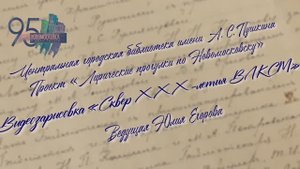 95
НОВОМОСКОВСК
Центральная городская библиотека имени А. С. Пушкина
Проект «Лирические прогулки по Новомосковску»
Видеозарисовка «Сквер XXX-летия ВЛКСМ»
Ведущая Юлия Егорова